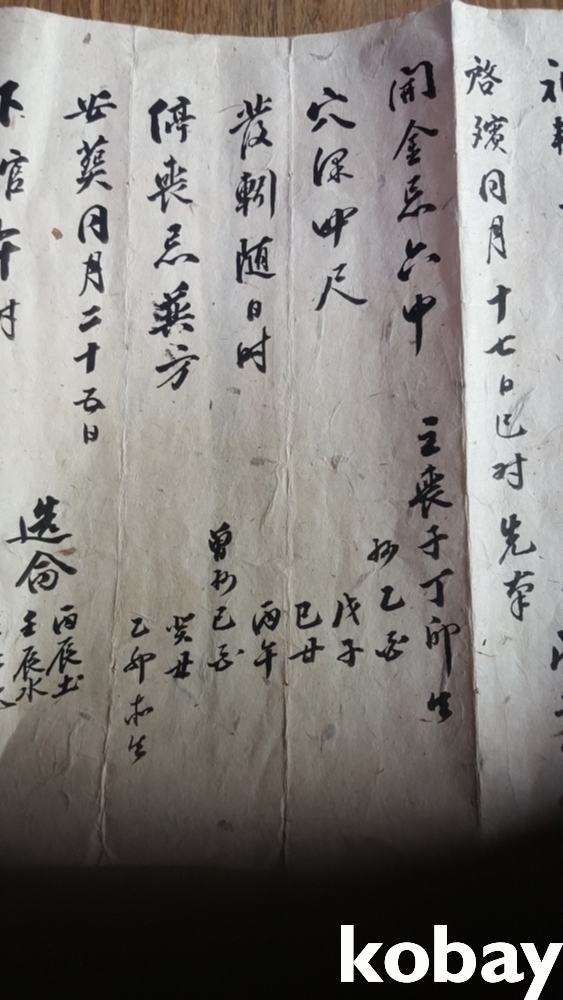 啓殯同月十七日巳时 先南
開金忌六甲 主喪子丁卯生
孙乙亥
穴深四尺 戊子
己丑
發靷随日时 丙午
曾孙己亥
停喪忌葬方 癸丑
乙卯 未生
安葬同月二十五日
下官午时 造命
丙辰土
壬辰水
kobay